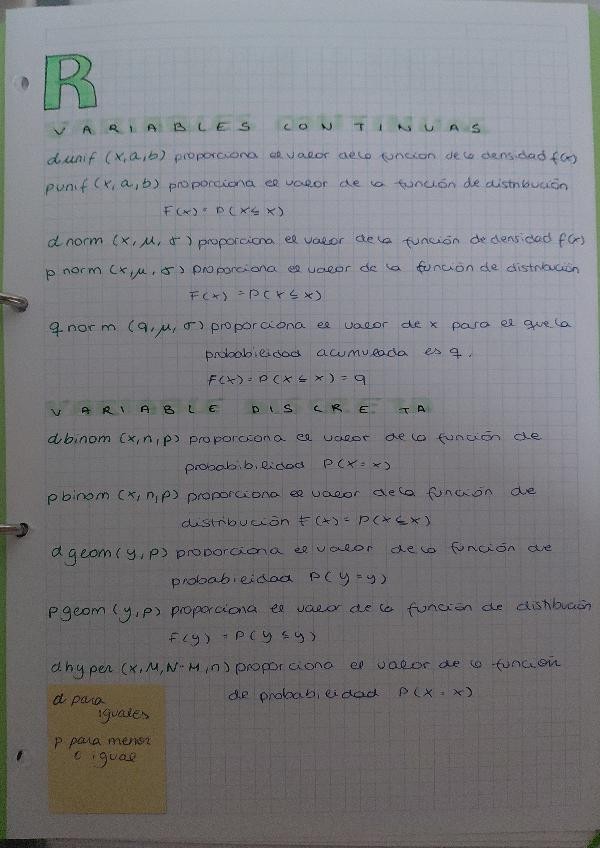 R
VARIABLES CONTINUAS
dunif (x,a,b) proporciona el valor de la función de la densidad f(x)
punif (x,a,b) proporciona el valor de la función de distribución
F(x) = P(X≤x)
dnorm (x,μ,σ) proporciona el valor de la función de densidad f(x)
pnorm (x,μ,σ) proporciona el valor de la función de distribución
F(x) = P(X≤x)
qnorm (q,μ,σ) proporciona el valor de x para el que la
probabilidad acumulada es q.
F(x) = P(X≤x) = q
VARIABLE DISCRETA
dbinom (x,n,p) proporciona el valor de la función de
probabibilidad P(X=x)
pbinom (x,n,p) proporciona el valor de la función de
distribución F(x) = P(X≤x)
dgeom (y,p) proporciona el valor de la función de
probabilidad P(Y=y)
pgeom (y,p) proporciona el valor de la función de distibución
F(y) = P(Y≤y)
dhyper (x,M,N-M,n) proporciona el valor de la función
de probabilidad P(X=x)
d para
iguales
p para menor
o igual